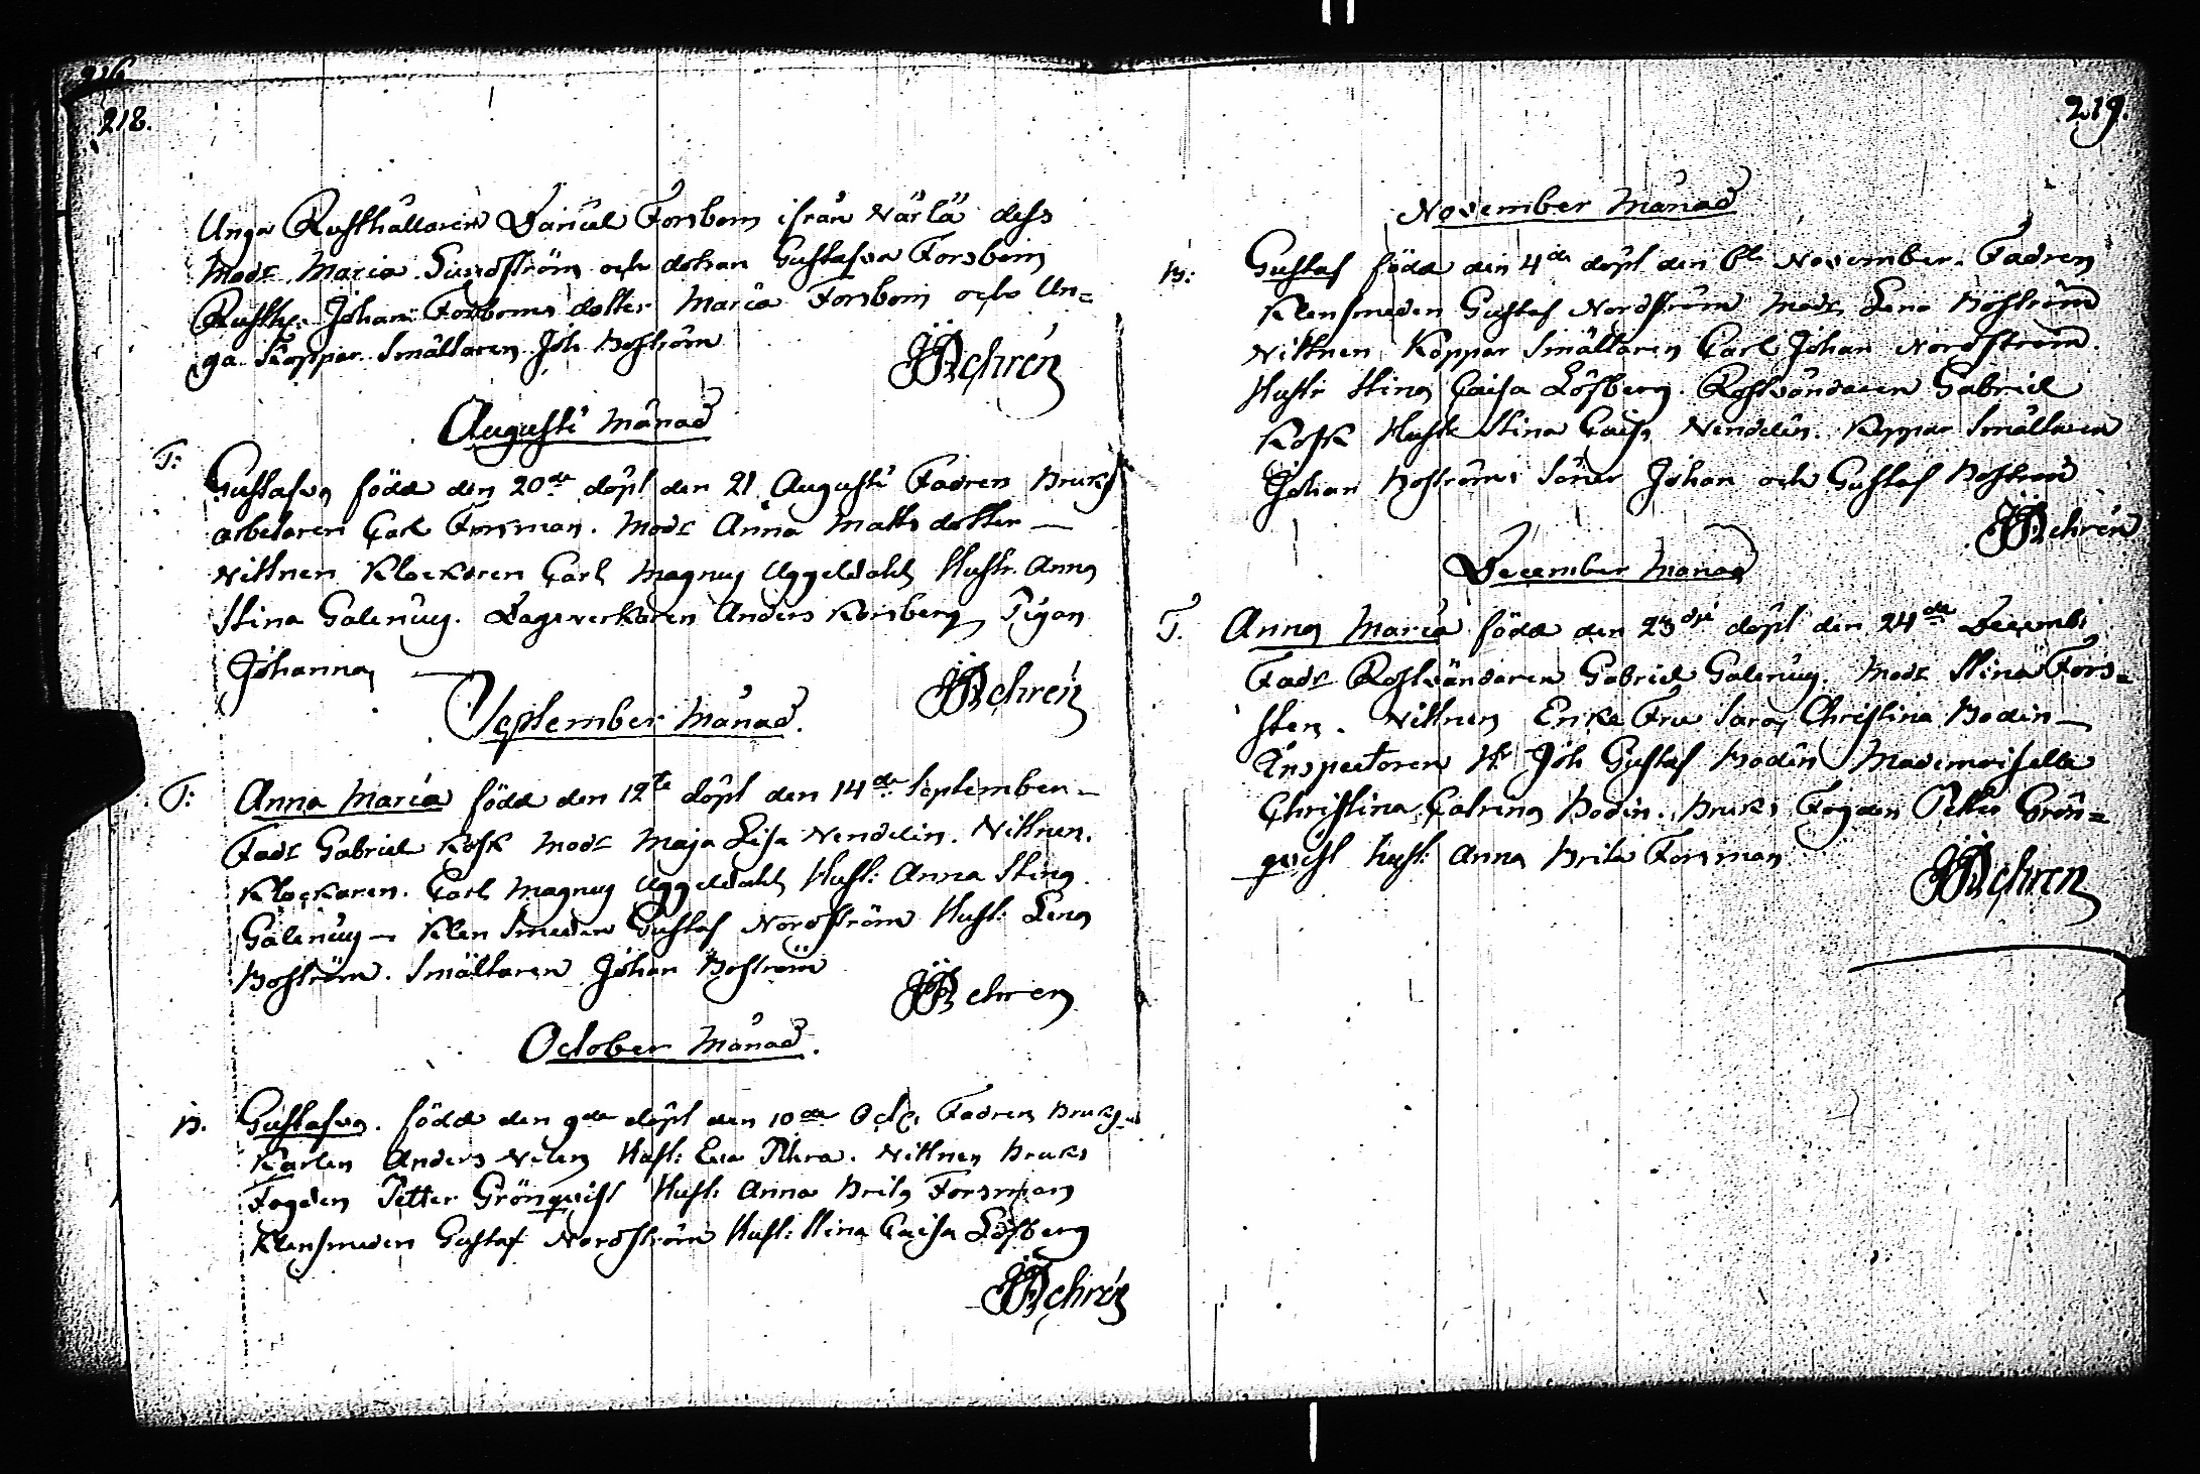 218.
Unga Rusthållaren Daniel Forsbom ifrån Närlä dess
Modr Maria Sundström och dotran Gustafva Forsbom
Rusth: Johan Forsboms dotter Maria Forsbom och Un=
ga Koppar Smältaren Joh Boström
JJBehrén
Augusti Månad
F: Gustafva född den 20de döpt den 21 Augusti Fadren Bruks
arbetaren Carl Forsman. Modr Anna Matts dotter —
Vittnen Klockaren Carl Magnus Uggeldahl Hustr. Anna
Stina Galenus. Dagsverkaren Anders Korsberg, Pigan
Johanna —
JJBehrén
September Månad.
F: Anna Maria född den 12te döpt den 14de September —
Fadr Gabriel Kosk Modr Maja Lisa Vendelin. Vittnen.
Klockaren. Carl Magnus Uggeldahl Hust: Anna Stina
Galenus — Klen Smeden Gustaf Nordström Hust: Lena
Boström. Smältaren Johan Boström
JJBehren
October Månad.
B. Gustafva. född den 9de döpt den 10de Oct. Fadren Bruks=
Karlen Anders Hust: Eva. Vittnen Bruks
Fogden Petter Grönqvist Hust: Anna Brita Forsman
Klensmeden Gustaf Nordström Hust: Stina Caisa Löfberg
JJBehrén
219.
November Månad
B: Gustaf född den 4de döpt den 6te November. Fadren
Klensmeden Gustaf Nordström Modr Lena Boström
Vittnen Koppar Smältaren Carl Johan Nordström.
Hustr Stina Caisa Löfberg. Rostvändaren Gabriel
Kosk Hustr Stina Caisa Vendelin. Koppar Smältaren
Johan Boströms Söner Johan och Gustaf Boström
JJBehrén
December Månad
F. Anna Maria född den 23dje döpt den 24de Decemb:
Fadr Rostvändaren Gabriel Galenus. Modr Stina Fors=
sten. Vittnen Enke Fru Sara Christina Bodin —
Inspectoren Hr Joh Gustaf Bodin Mademoiselle
Christina Catrina Bodin. Bruks Fogden Petter Grön=
qvist Hust: Anna Brita Forsman
JJBehren